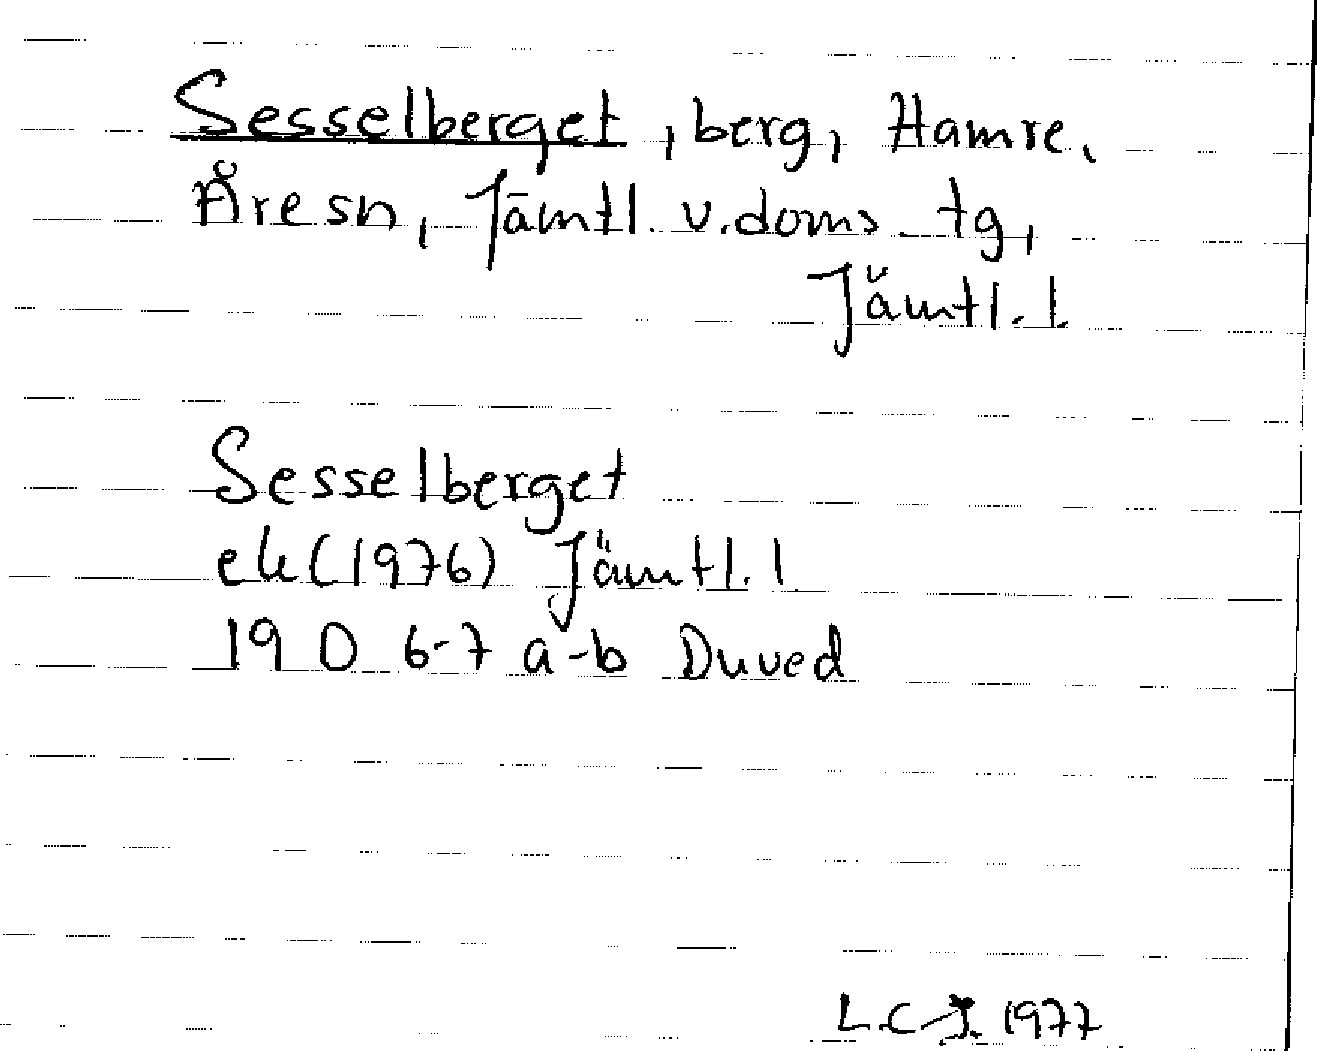 Sesselberget, berg, Hamre,
Åre sn, Jämtl. v. doms tg,
Jämtl. l.
Sesselberget
ek (1976) Jämtl. l
19 D 6-7 a-b Duved
L.C.J. 1977